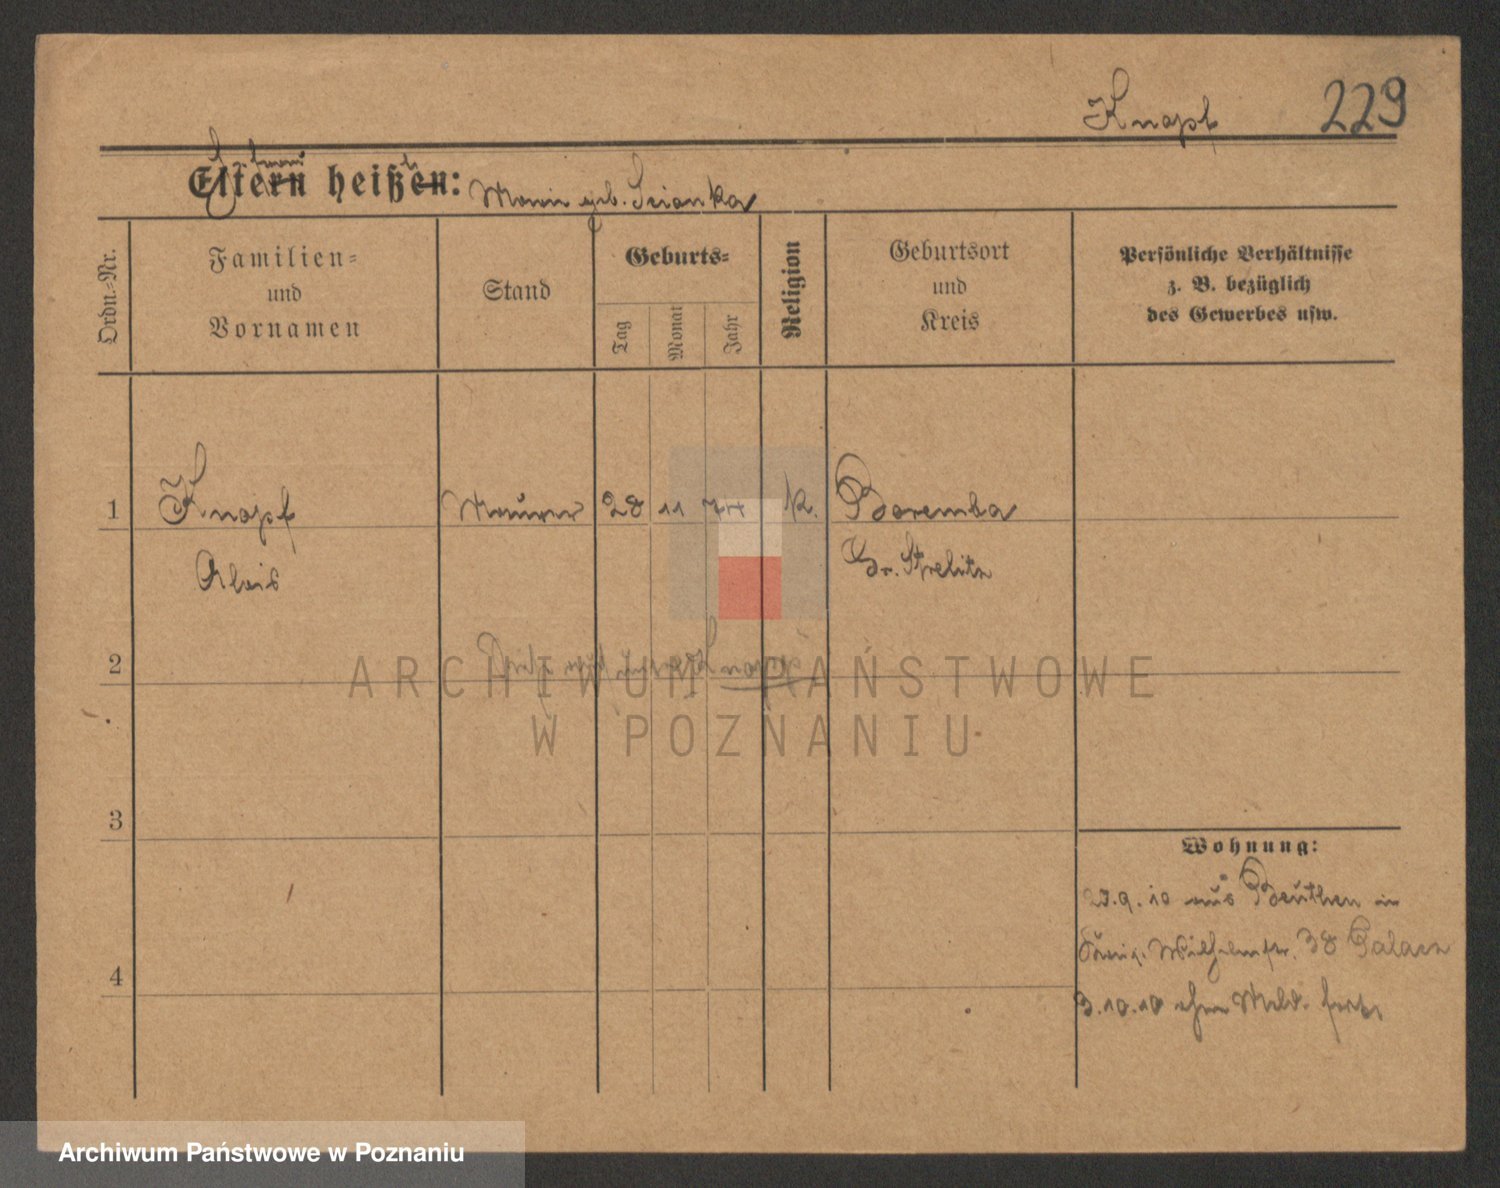 Knopf 229
Eltern heißen: Maria geb. Srianka
Ordn.-Nr.
Familien-
und
Vornamen
Stand
Geburts-
Tag
Monat
Jahr
Religion
Geburtsort
und
Kreis
Persönliche Verhältnisse
z. B. bezüglich
des Gewerbes usw.
1 Knopf Maurer 28 11 74 k. Boremba
Alois Gr. Strelitz
2
3
4
Wohnung:
27.9.10 aus Beuthen in
Wilhelmstr. 38
3.10.10 ohne Meld. fort
ARCHIWUM PAŃSTWOWE
W POZNANIU
Archiwum Państwowe w Poznaniu